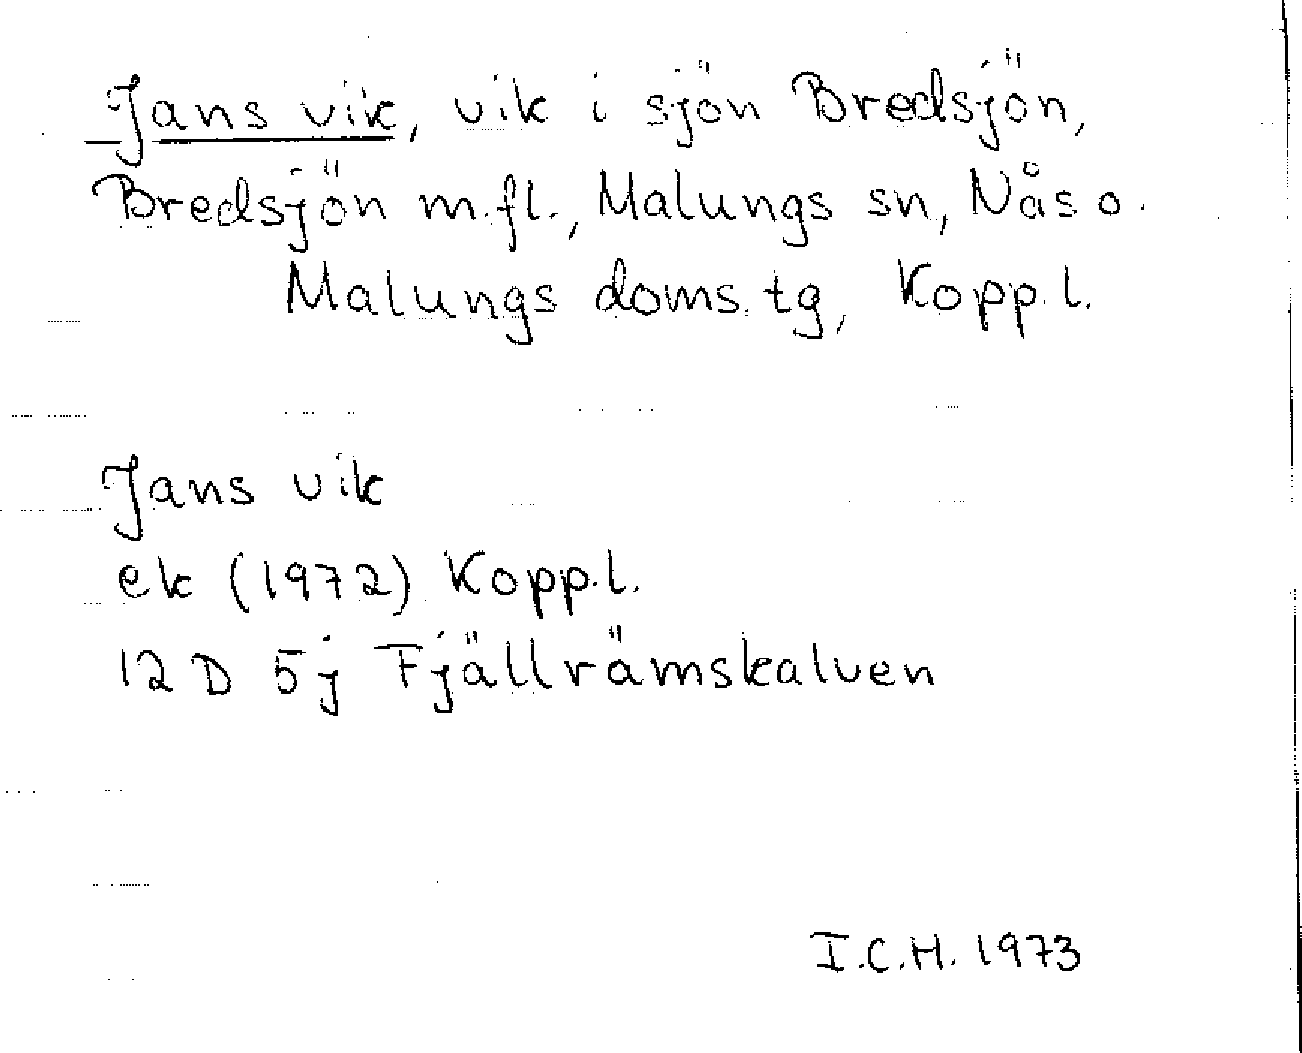 Jans vik, vik i sjön Bredsjön,
Bredsjön m.fl., Malungs sn, Nås o.
Malungs doms.tg, Kopp.l.
Jans vik
ek (1972) Kopp.l.
12 D 5j Fjällrämskalven
I.C.H. 1973